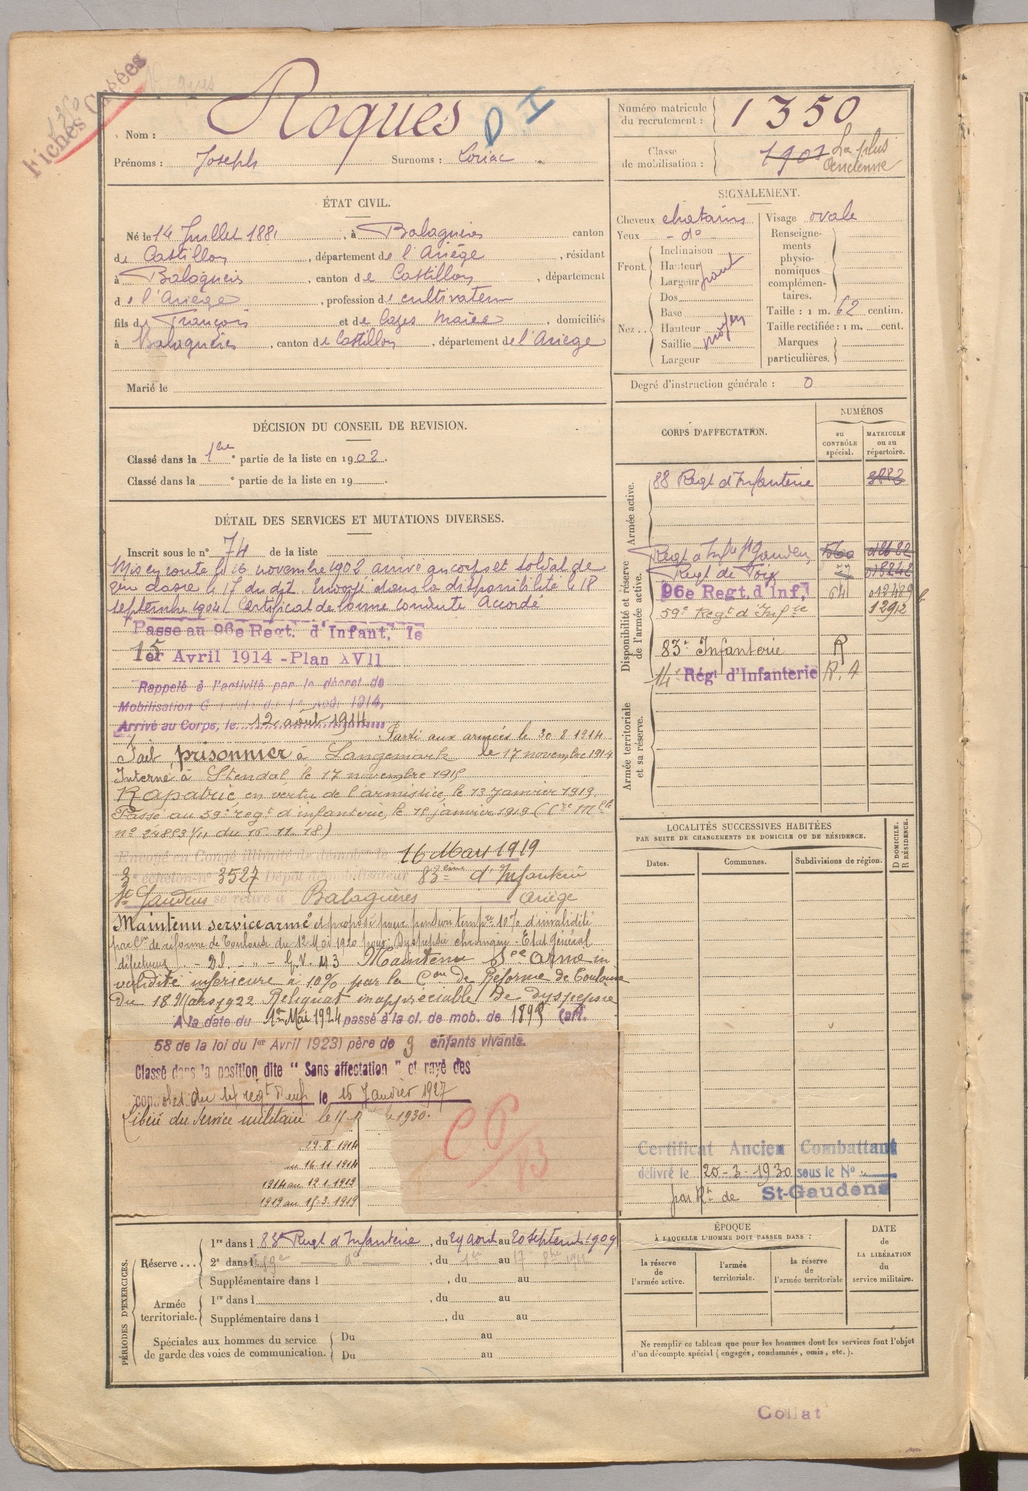 Fiches Créées
Nom : Roques
Prénoms : Joseph Surnoms : Loriac
D I
Numéro matricule du recrutement : 1350
Classe de mobilisation : 1901 La plus ancienne
ÉTAT CIVIL.
Né le 14 Juillet 1881, à Balaguères canton
de Castillon, département de l'Ariège, résidant
à Balaguères, canton de Castillon, département
de l'Ariège, profession de cultivateur
fils de François et de Cazes Marie, domiciliés
à Balaguères, canton de Castillon, département de l'Ariège
Marié le
SIGNALEMENT.
Cheveux chatains
Yeux - do
Front. Inclinaison
Hauteur
Largeur
Nez Dos
Base
Hauteur moyen
Saillie
Largeur
Visage ovale
Renseignements physionomiques complémentaires.
Taille : 1 m. 62 centim.
Taille rectifiée : 1 m. cent.
Marques particulières.
Degré d'instruction générale : 0
DÉCISION DU CONSEIL DE REVISION.
Classé dans la 1re partie de la liste en 1902.
Classé dans la ° partie de la liste en 19
DÉTAIL DES SERVICES ET MUTATIONS DIVERSES.
Inscrit sous le n° 74 de la liste
Mis en route le 16 novembre 1902 arrivé au corps et soldat de
2me classe le 17 du dit. Envoyé dans la disponibilité le 18
septembre 1904. Certificat de bonne conduite Accordé
Passé au 96e Regt. d'Infant. le
1er Avril 1914 - Plan XVII
15
Rappelé à l'activité par le décret de
Mobilisation Générale du 1er Août 1914,
Arrivé au Corps, le 12 août 1914
Parti aux armées le 30 8 1914
Fait prisonnier à Langemark le 17 novembre 1914
Interné à Stendal le 17 novembre 1915
Rapatrié en vertu de l'armistice le 13 janvier 1919
Passé au 59e regt d'infanterie, le 15 janvier 1919 (Cre Mlle
n° 24883/11 du 16.11.18)
Envoyé en Congé illimité de démobon le 16 Mars 1919
3e échelon n° 3527 Dépôt démobilisateur 83ème d'Infanterie
St Gaudens se retire à Balaguères Ariège
Maintenu service armé et proposé pour pension tempre 10% d'invalidité
par Con de réforme de Toulouse du 12 Mai 1920 pour : Dyspepsie chronique - Etat Général
défectueux. Maintenu Sce armé in
validité inférieure à 10% par la Con de Réforme de Toulouse
du 18 Mars 1922 Reliquat inappréciable de dyspepsie
A la date du 1er Mai 1924 passé à la cl. de mob. de (art.
58 de la loi du 1er Avril 1923) père de 3 enfants vivants.
Classé dans la position dite "Sans affectation" et rayé des
contrôles du 14 regt le 15 Janvier 1927
Libéré du Service militaire le 1930.
29-8-1914
au 16-11-1914
1914 au 12-1-1919
1919 au 15-3-1919
CP/13
CORPS D'AFFECTATION.
NUMÉROS
au CONTRÔLE spécial.
MATRICULE ou au répertoire.
Armée active.
88 Regt d'Infanterie 3883
Disponibilité et réserve de l'armée active.
Regt d'Infie St Gaudens
Regt de Foix
96e Regt. d'Inf. 641
59e Regt d'Infie 1292
83e Infanterie R
14 Régt d'Infanterie
Armée territoriale et sa réserve.
LOCALITÉS SUCCESSIVES HABITÉES
PAR SUITE DE CHANGEMENTS DE DOMICILE OU DE RÉSIDENCE.
Dates.
Communes.
Subdivisions de région.
D DOMICILE. R RÉSIDENCE.
Certificat Ancien Combattant
délivré le 20-3-1930 sous le No
par Rt de St-Gaudens
PÉRIODES D'EXERCICES.
Réserve ... 1re dans l 88e Regt d'Infanterie, du 29 août au 20 septemb 1909
2e dans l 59e do, du 1er au 17
Supplémentaire dans l, du au
Armée territoriale. 1re dans l, du au
Supplémentaire dans l, du au
Spéciales aux hommes du service de garde des voies de communication. Du au
Du au
ÉPOQUE
À LAQUELLE L'HOMME DOIT PASSER DANS :
la réserve de l'armée active.
l'armée territoriale.
la réserve de l'armée territoriale
DATE de LA LIBÉRATION du service militaire.
Ne remplir ce tableau que pour les hommes dont les services font l'objet
d'un décompte spécial (engagés, condamnés, omis, etc.).
Collat